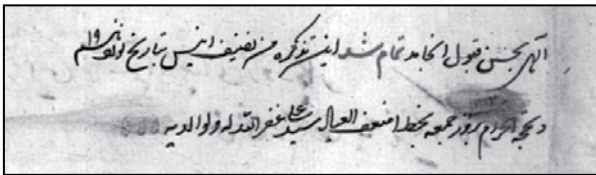 الهی بحسن قبول انجامد تمام شد این تذکره من تصنیف انیس بتاریخ ۱۹
ذیحجه الحرام بروز جمعه بخط اضعف العباد سید علی غفر الله له ولوالدیه